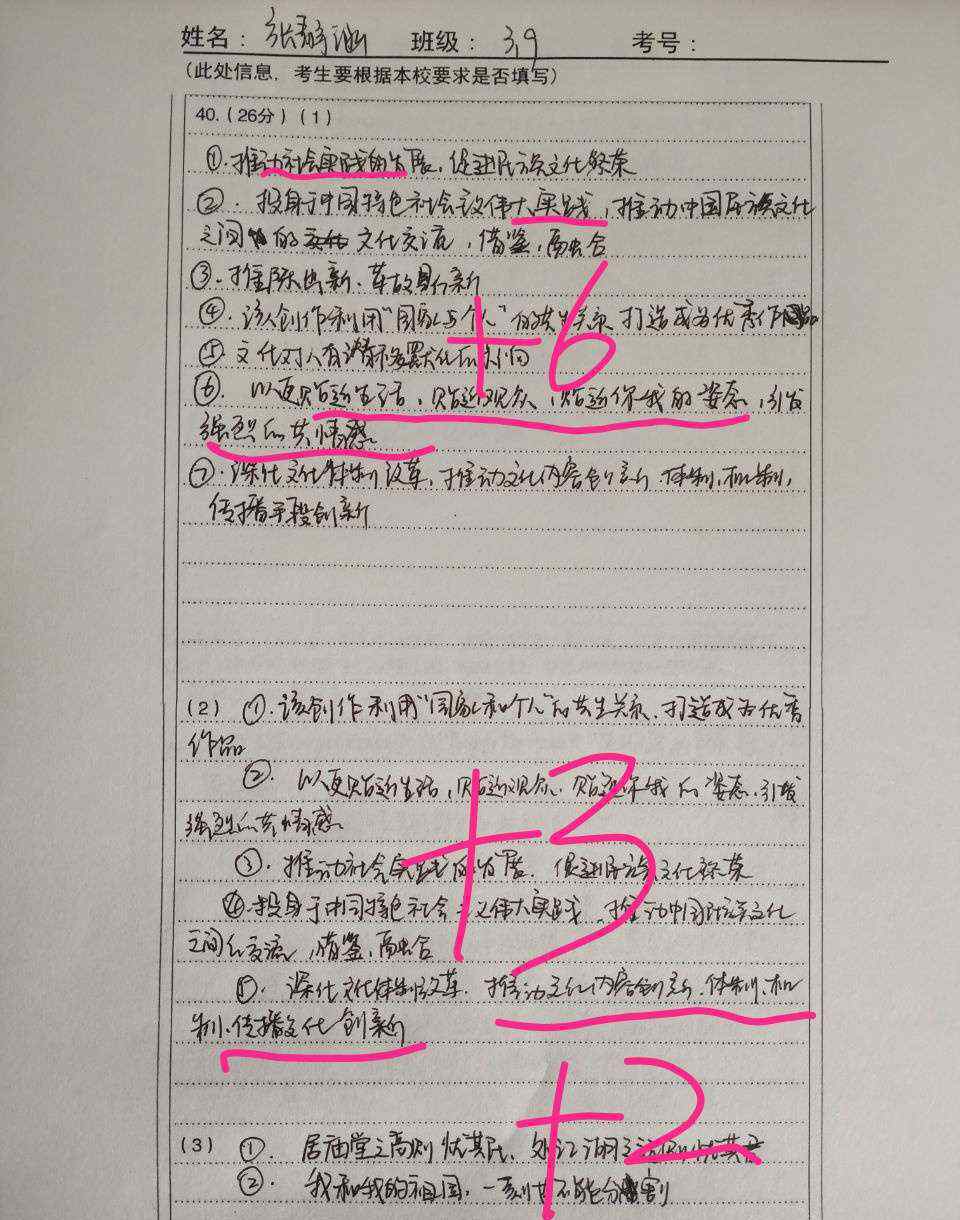 姓名：张静涵 班级：39 考号：
(此处信息，考生要根据本校要求是否填写)
40.(26分)(1)
①.推动社会实践的发展，促进民族文化繁荣
②. 投身于中国特色社会议伟大实践，推动中国民族文化
之间的文化交流，借鉴，融合
③.推陈出新、革故鼎新
④. 该创作利用"国家与个人"的共生关系，打造成为优秀作品
⑤.文化对人有潜移默化的影响
⑥. 以更贴近生活，贴近观众，贴近你我的姿态，引发
强烈的共情感。
⑦.深化文化体制改革，推动文化内容创新、体制，机制，
传播手段创新
+6
(2) ①.该创作利用"国家和个人"的共生关系，打造成为优秀
作品
②. 以更贴近生活，贴近观众，贴近你我的姿态，引发
强烈的共情感。
③.推动社会实践的发展，促进民族文化繁荣
④.投身于中国特色社会主义伟大实践，推动中国民族文化
之间的交流，借鉴，融合
⑤. 深化文化体制改革，推动文化内容创新、体制、机
制、传播文化创新
+3
(3) ① 居庙堂之高则忧其民，处江湖之远则忧其君
②. 我和我的祖国，一刻也不能分割
+2